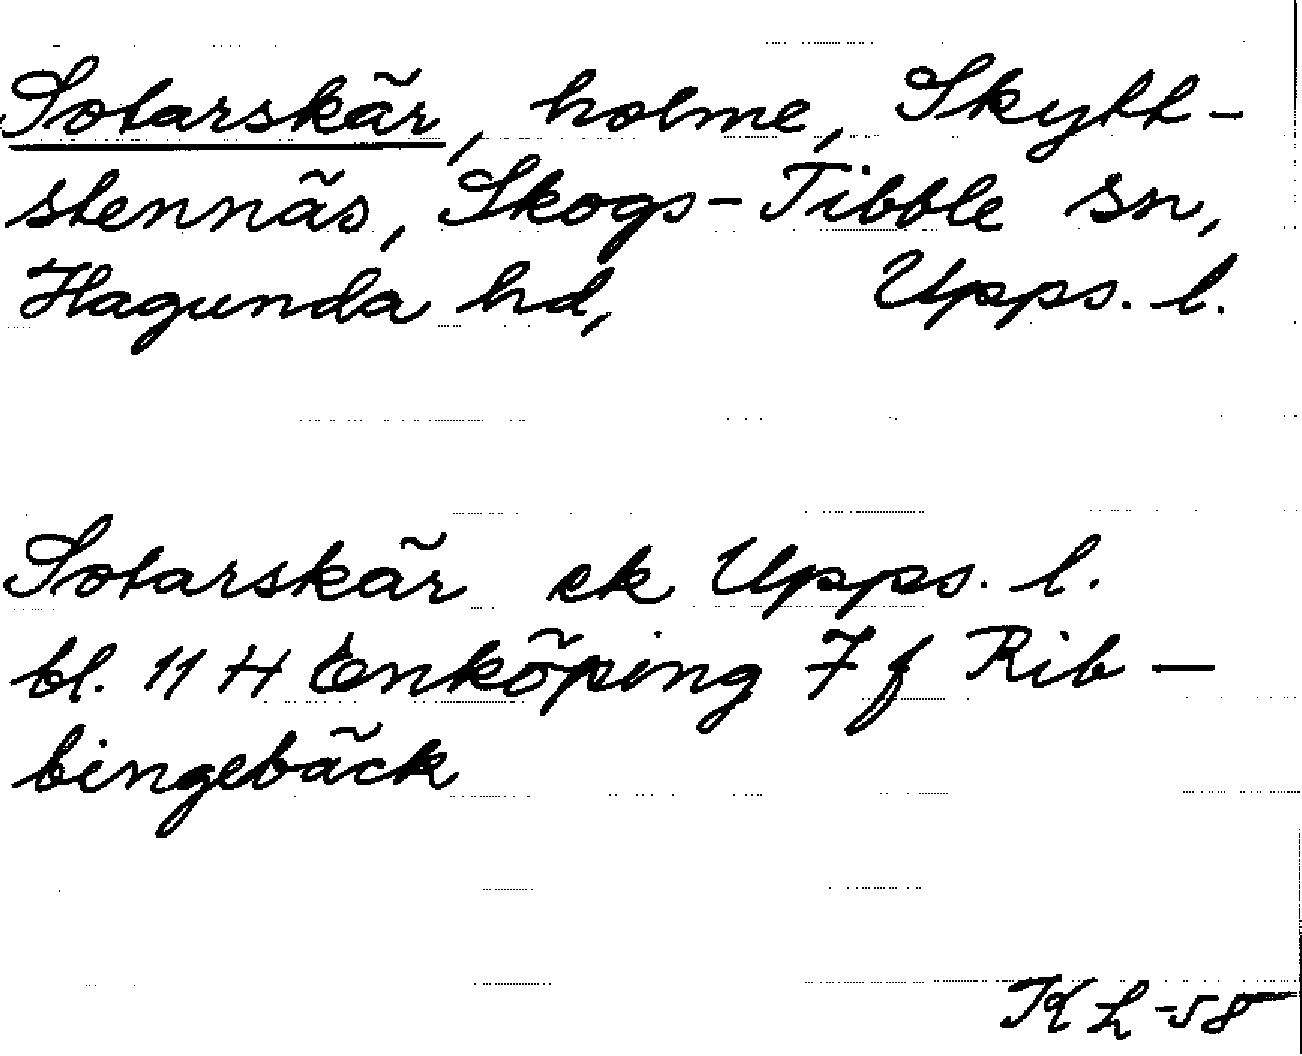 Sotarskär, holme, Skytt-
stennäs, Skogs-Tibble sn,
Hagunda hd, Upps. l.
Sotarskär ek Upps. l.
bl. 11 H Enköping 7 f Rib-
bingebäck
KL -58